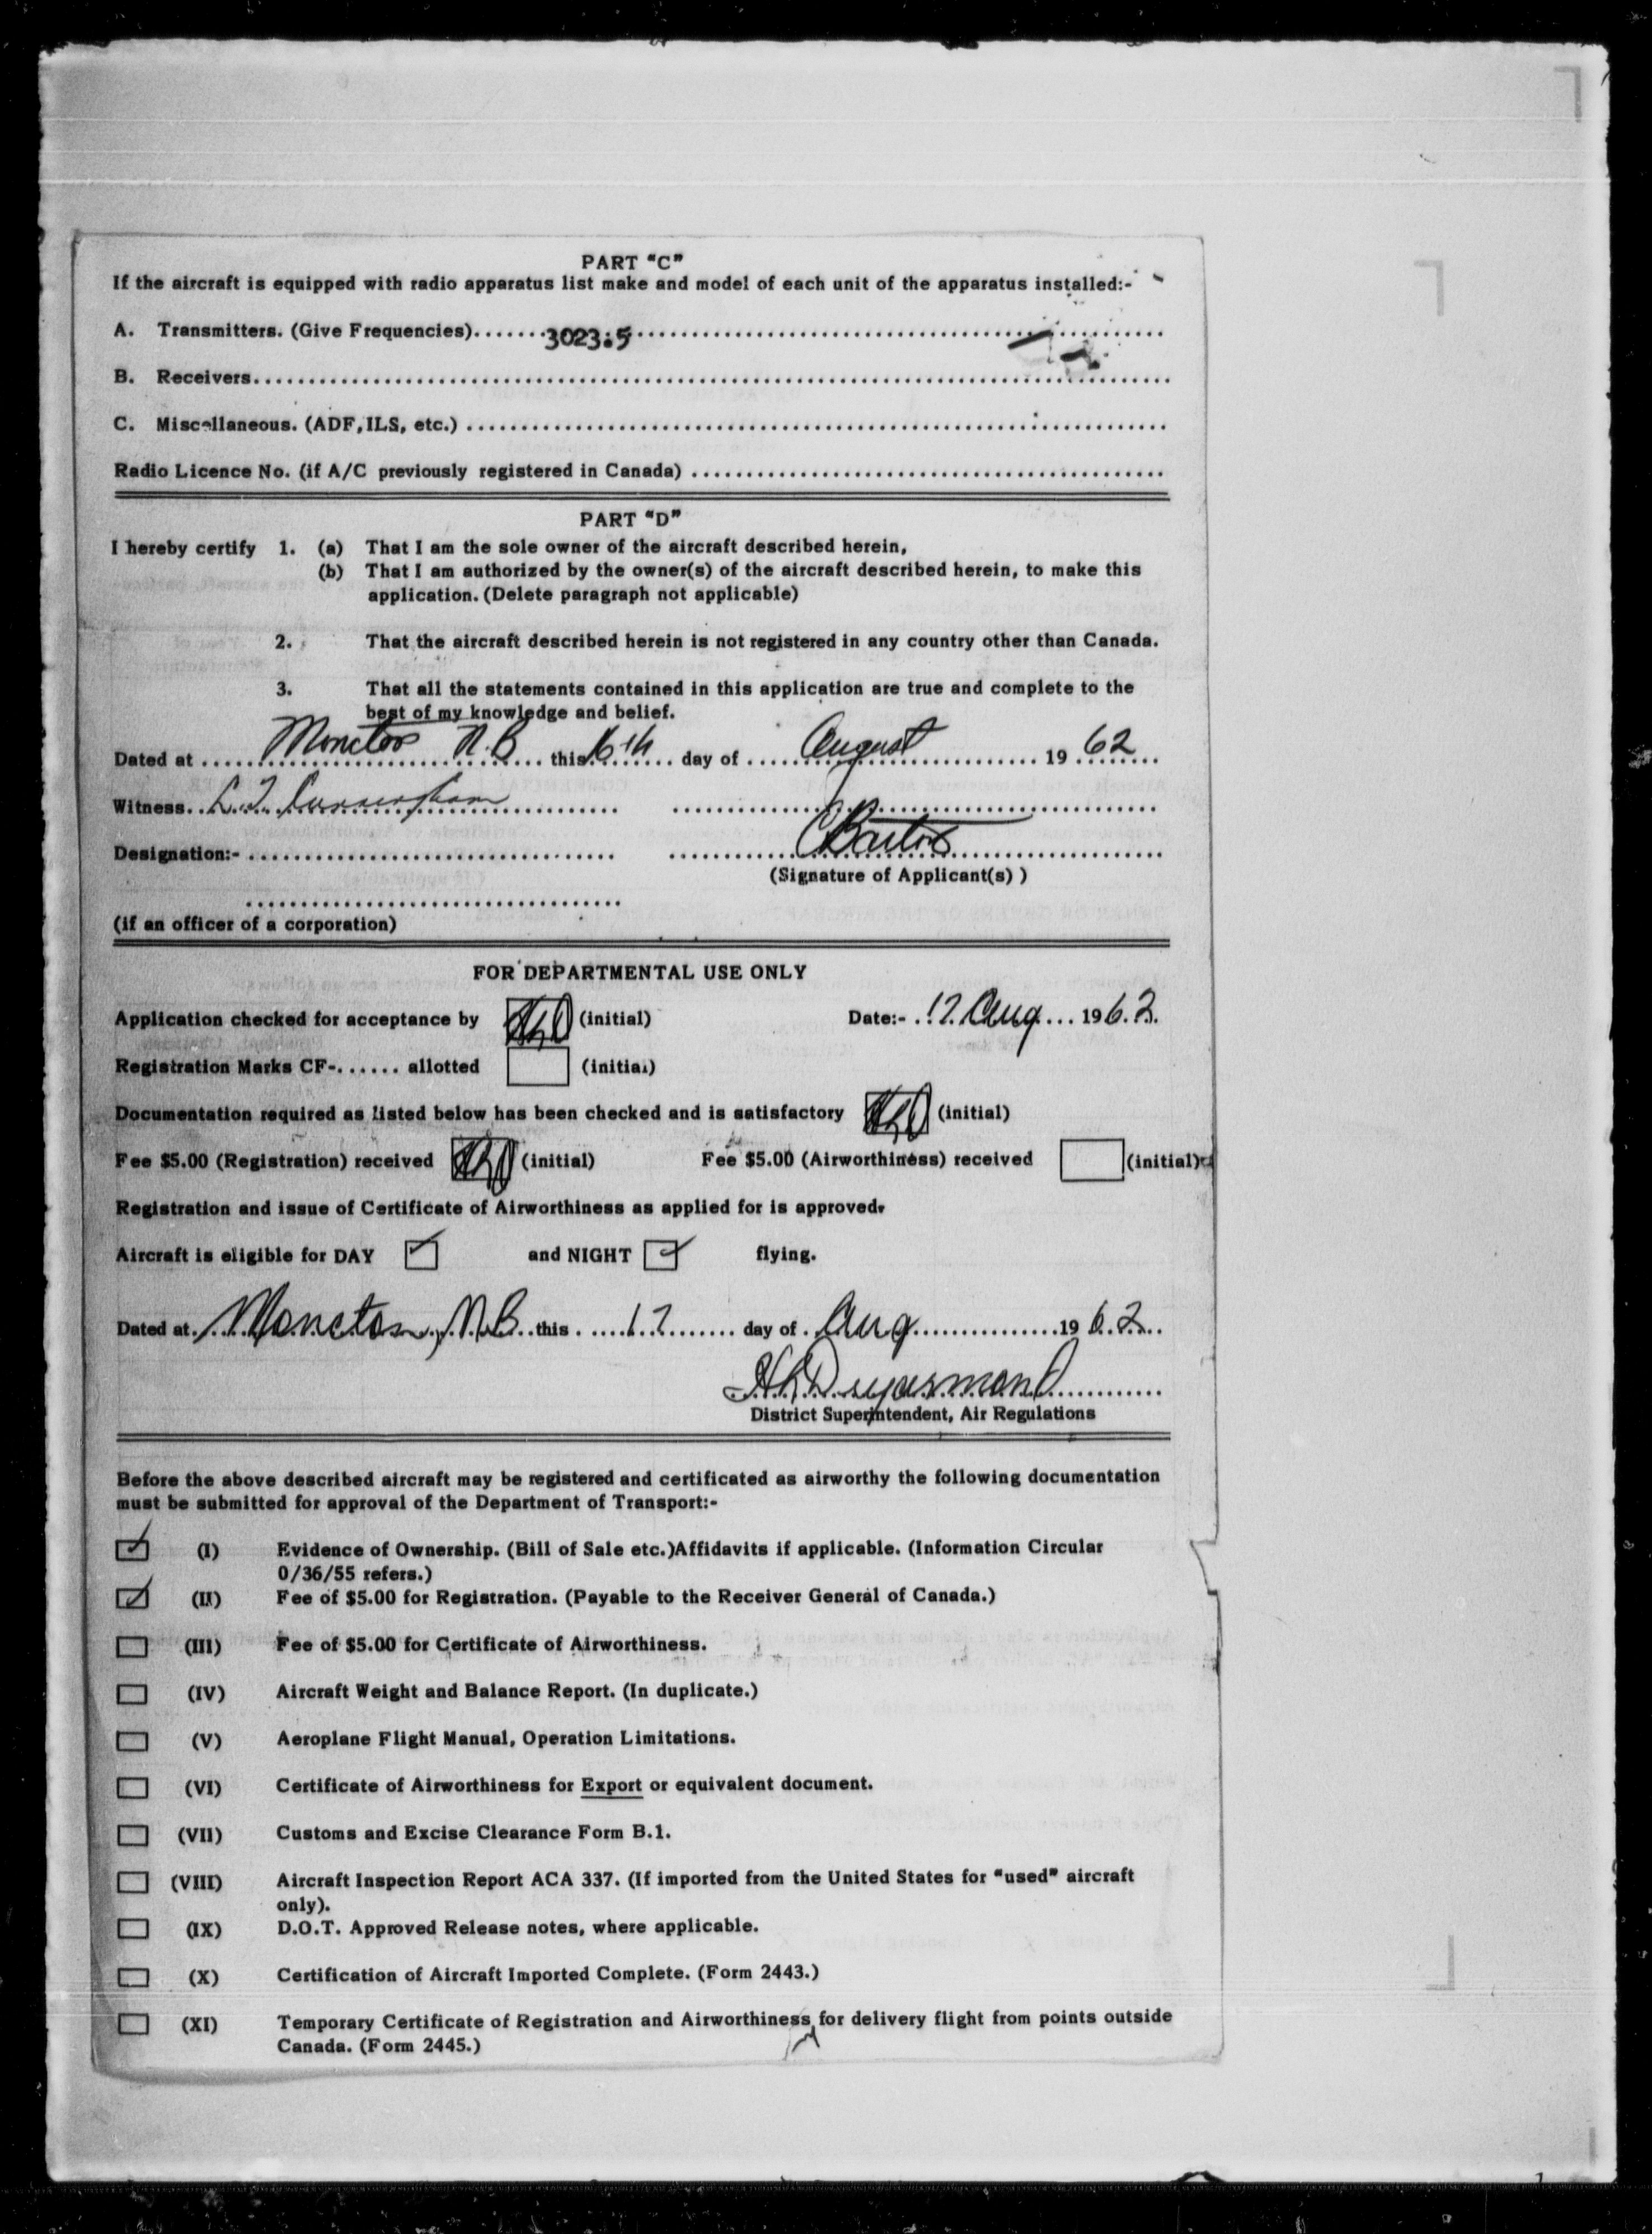 PART "C"
If the aircraft is equipped with radio apparatus list make and model of each unit of the apparatus installed:-
A. Transmitters. (Give Frequencies).......3023.5.......
B. Receivers.......
C. Miscellaneous. (ADF, ILS, etc.) .......
Radio Licence No. (if A/C previously registered in Canada) .......
PART "D"
I hereby certify 1. (a) That I am the sole owner of the aircraft described herein,
(b) That I am authorized by the owner(s) of the aircraft described herein, to make this
application. (Delete paragraph not applicable)
2. That the aircraft described herein is not registered in any country other than Canada.
3. That all the statements contained in this application are true and complete to the
best of my knowledge and belief.
Dated at ....... Moncton N.B ....... this ....... day of ....... August ....... 19 62
Witness.......
Designation:- .......
(Signature of Applicant(s) )
(if an officer of a corporation)
FOR DEPARTMENTAL USE ONLY
Application checked for acceptance by (initial) Date:- 17 Aug ... 1962.
Registration Marks CF-...... allotted (initial)
Documentation required as listed below has been checked and is satisfactory (initial)
Fee $5.00 (Registration) received (initial) Fee $5.00 (Airworthiness) received (initial)
Registration and issue of Certificate of Airworthiness as applied for is approved.
Aircraft is eligible for DAY ✓ and NIGHT ✓ flying.
Dated at. Moncton, N.B. this ..... 17 ....... day of . Aug ....... 19 62
District Superintendent, Air Regulations
Before the above described aircraft may be registered and certificated as airworthy the following documentation
must be submitted for approval of the Department of Transport:-
✓ (I) Evidence of Ownership. (Bill of Sale etc.)Affidavits if applicable. (Information Circular
0/36/55 refers.)
✓ (II) Fee of $5.00 for Registration. (Payable to the Receiver General of Canada.)
(III) Fee of $5.00 for Certificate of Airworthiness.
(IV) Aircraft Weight and Balance Report. (In duplicate.)
(V) Aeroplane Flight Manual, Operation Limitations.
(VI) Certificate of Airworthiness for Export or equivalent document.
(VII) Customs and Excise Clearance Form B.1.
(VIII) Aircraft Inspection Report ACA 337. (If imported from the United States for "used" aircraft
only).
(IX) D.O.T. Approved Release notes, where applicable.
(X) Certification of Aircraft Imported Complete. (Form 2443.)
(XI) Temporary Certificate of Registration and Airworthiness for delivery flight from points outside
Canada. (Form 2445.)